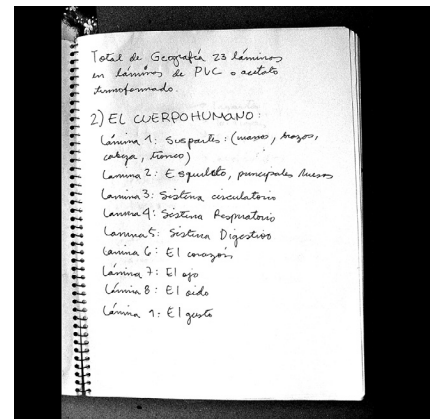 Total de Geografía 23 láminas
en láminas de PVC o acetato
termoformado.
2) EL CUERPO HUMANO:
Lámina 1: Sus partes: (manos, brazos,
cabeza, tronco)
Lamina 2: Esqueleto, principales huesos
Lamina 3: Sistema circulatorio
Lamina 4: Sistema Respiratorio
Lamina 5: Sistema Digestivo
Lamina 6: El corazón
Lámina 7: El ojo
Lámina 8: El oido
Lámina 9: El gusto